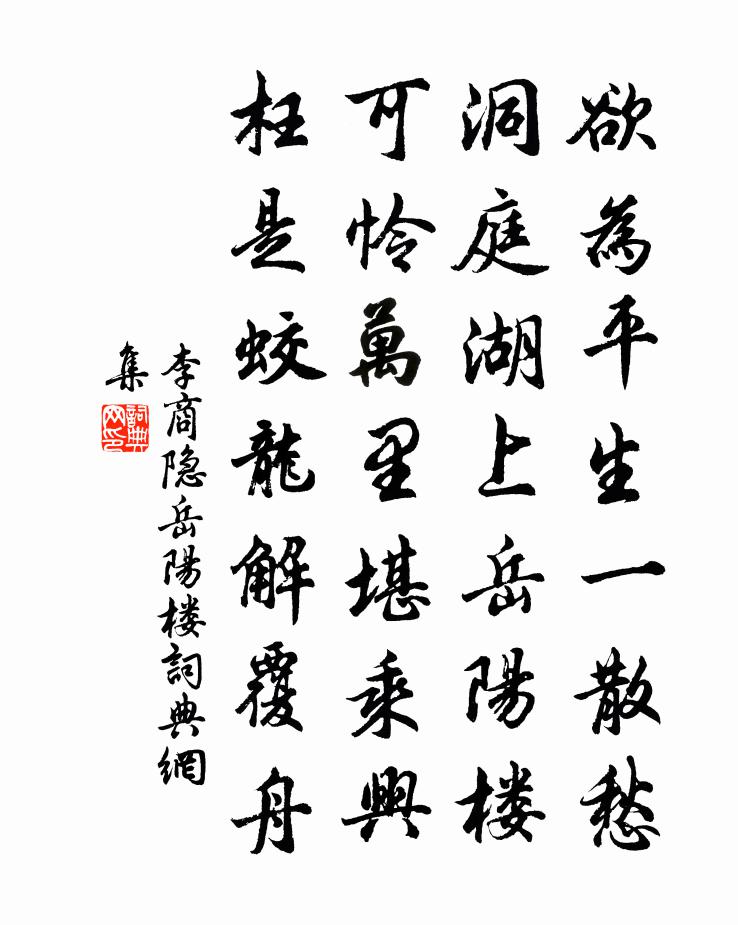 欲為平生一散愁
洞庭湖上岳陽楼
可怜萬里堪乘興
枉是蛟龍解覆舟
李商隐岳陽楼詞典網
集
詞典
网印